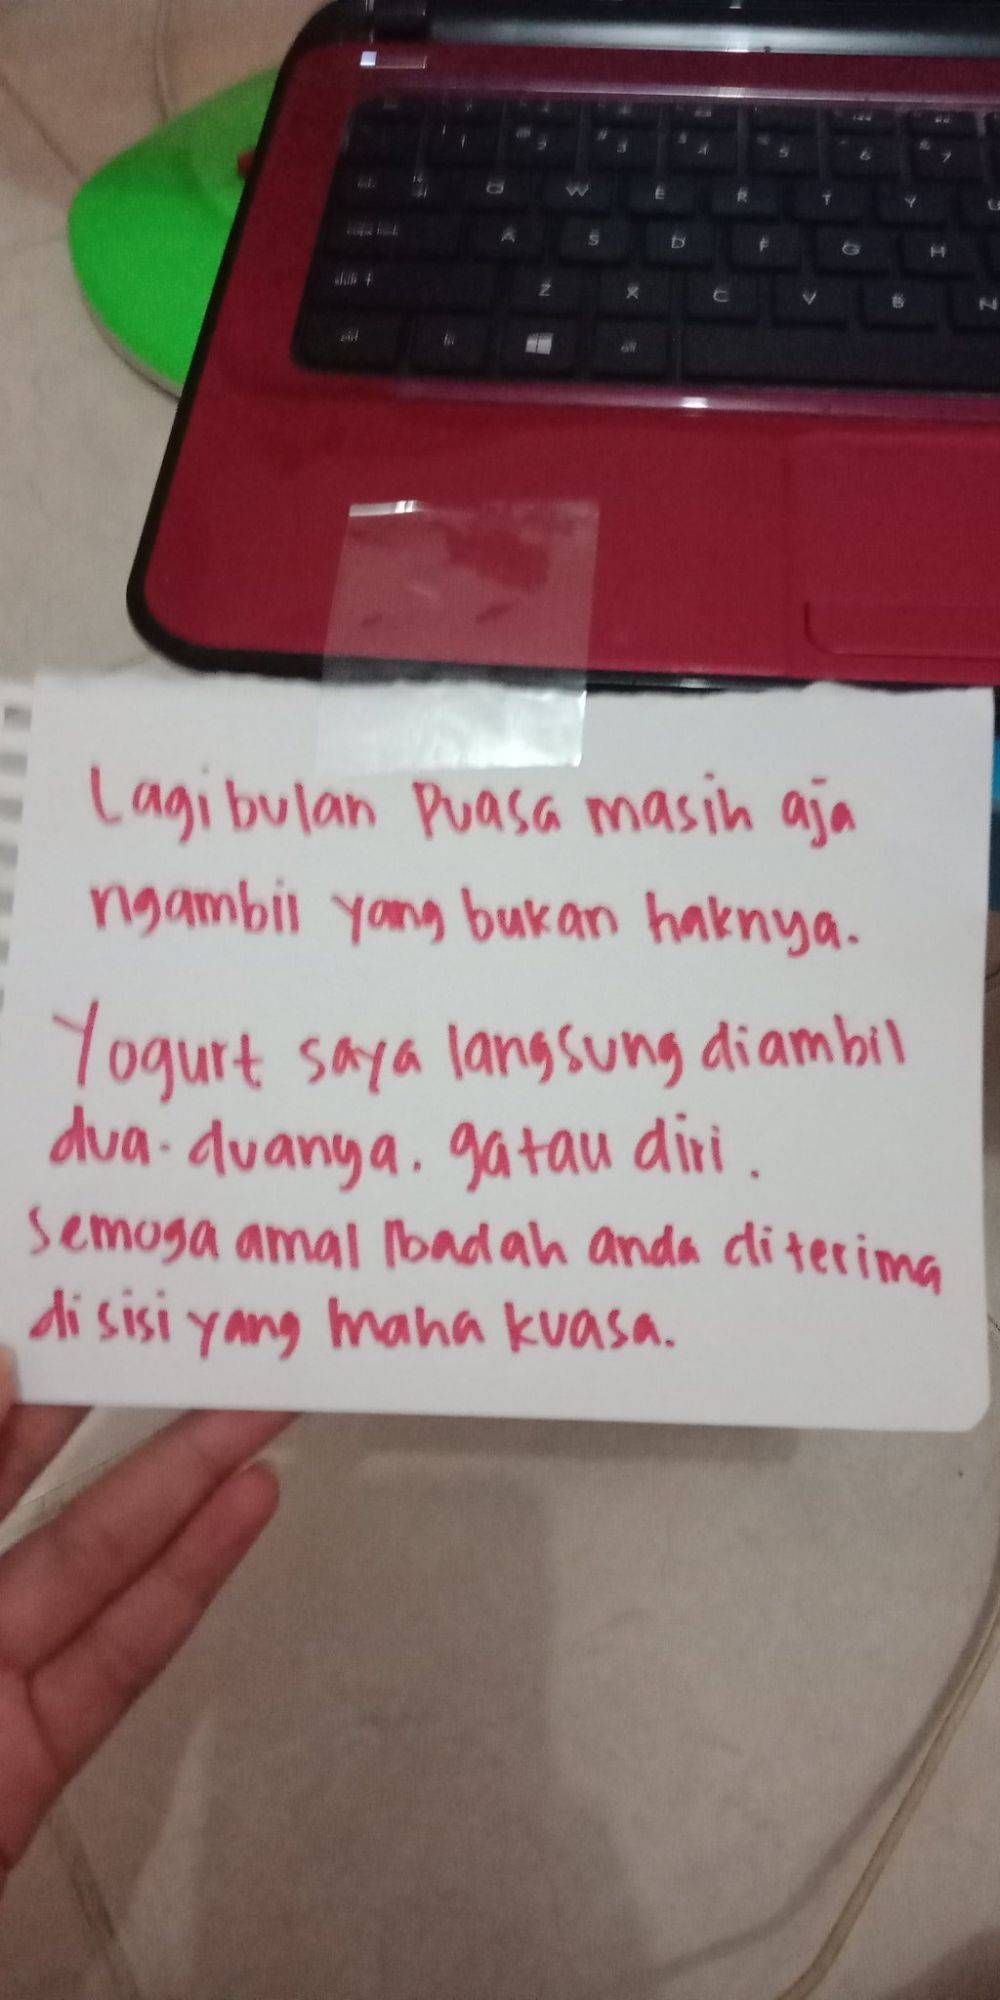 1 2 3 4 5 6 7
Q W E R T Y
A S D F G H
Z X C V B N
Lagi bulan puasa masih aja
ngambil yang bukan haknya.
Yogurt saya langsung diambil
dua-duanya. gatau diri.
Semoga amal Ibadah anda diterima
di sisi yang maha kuasa.